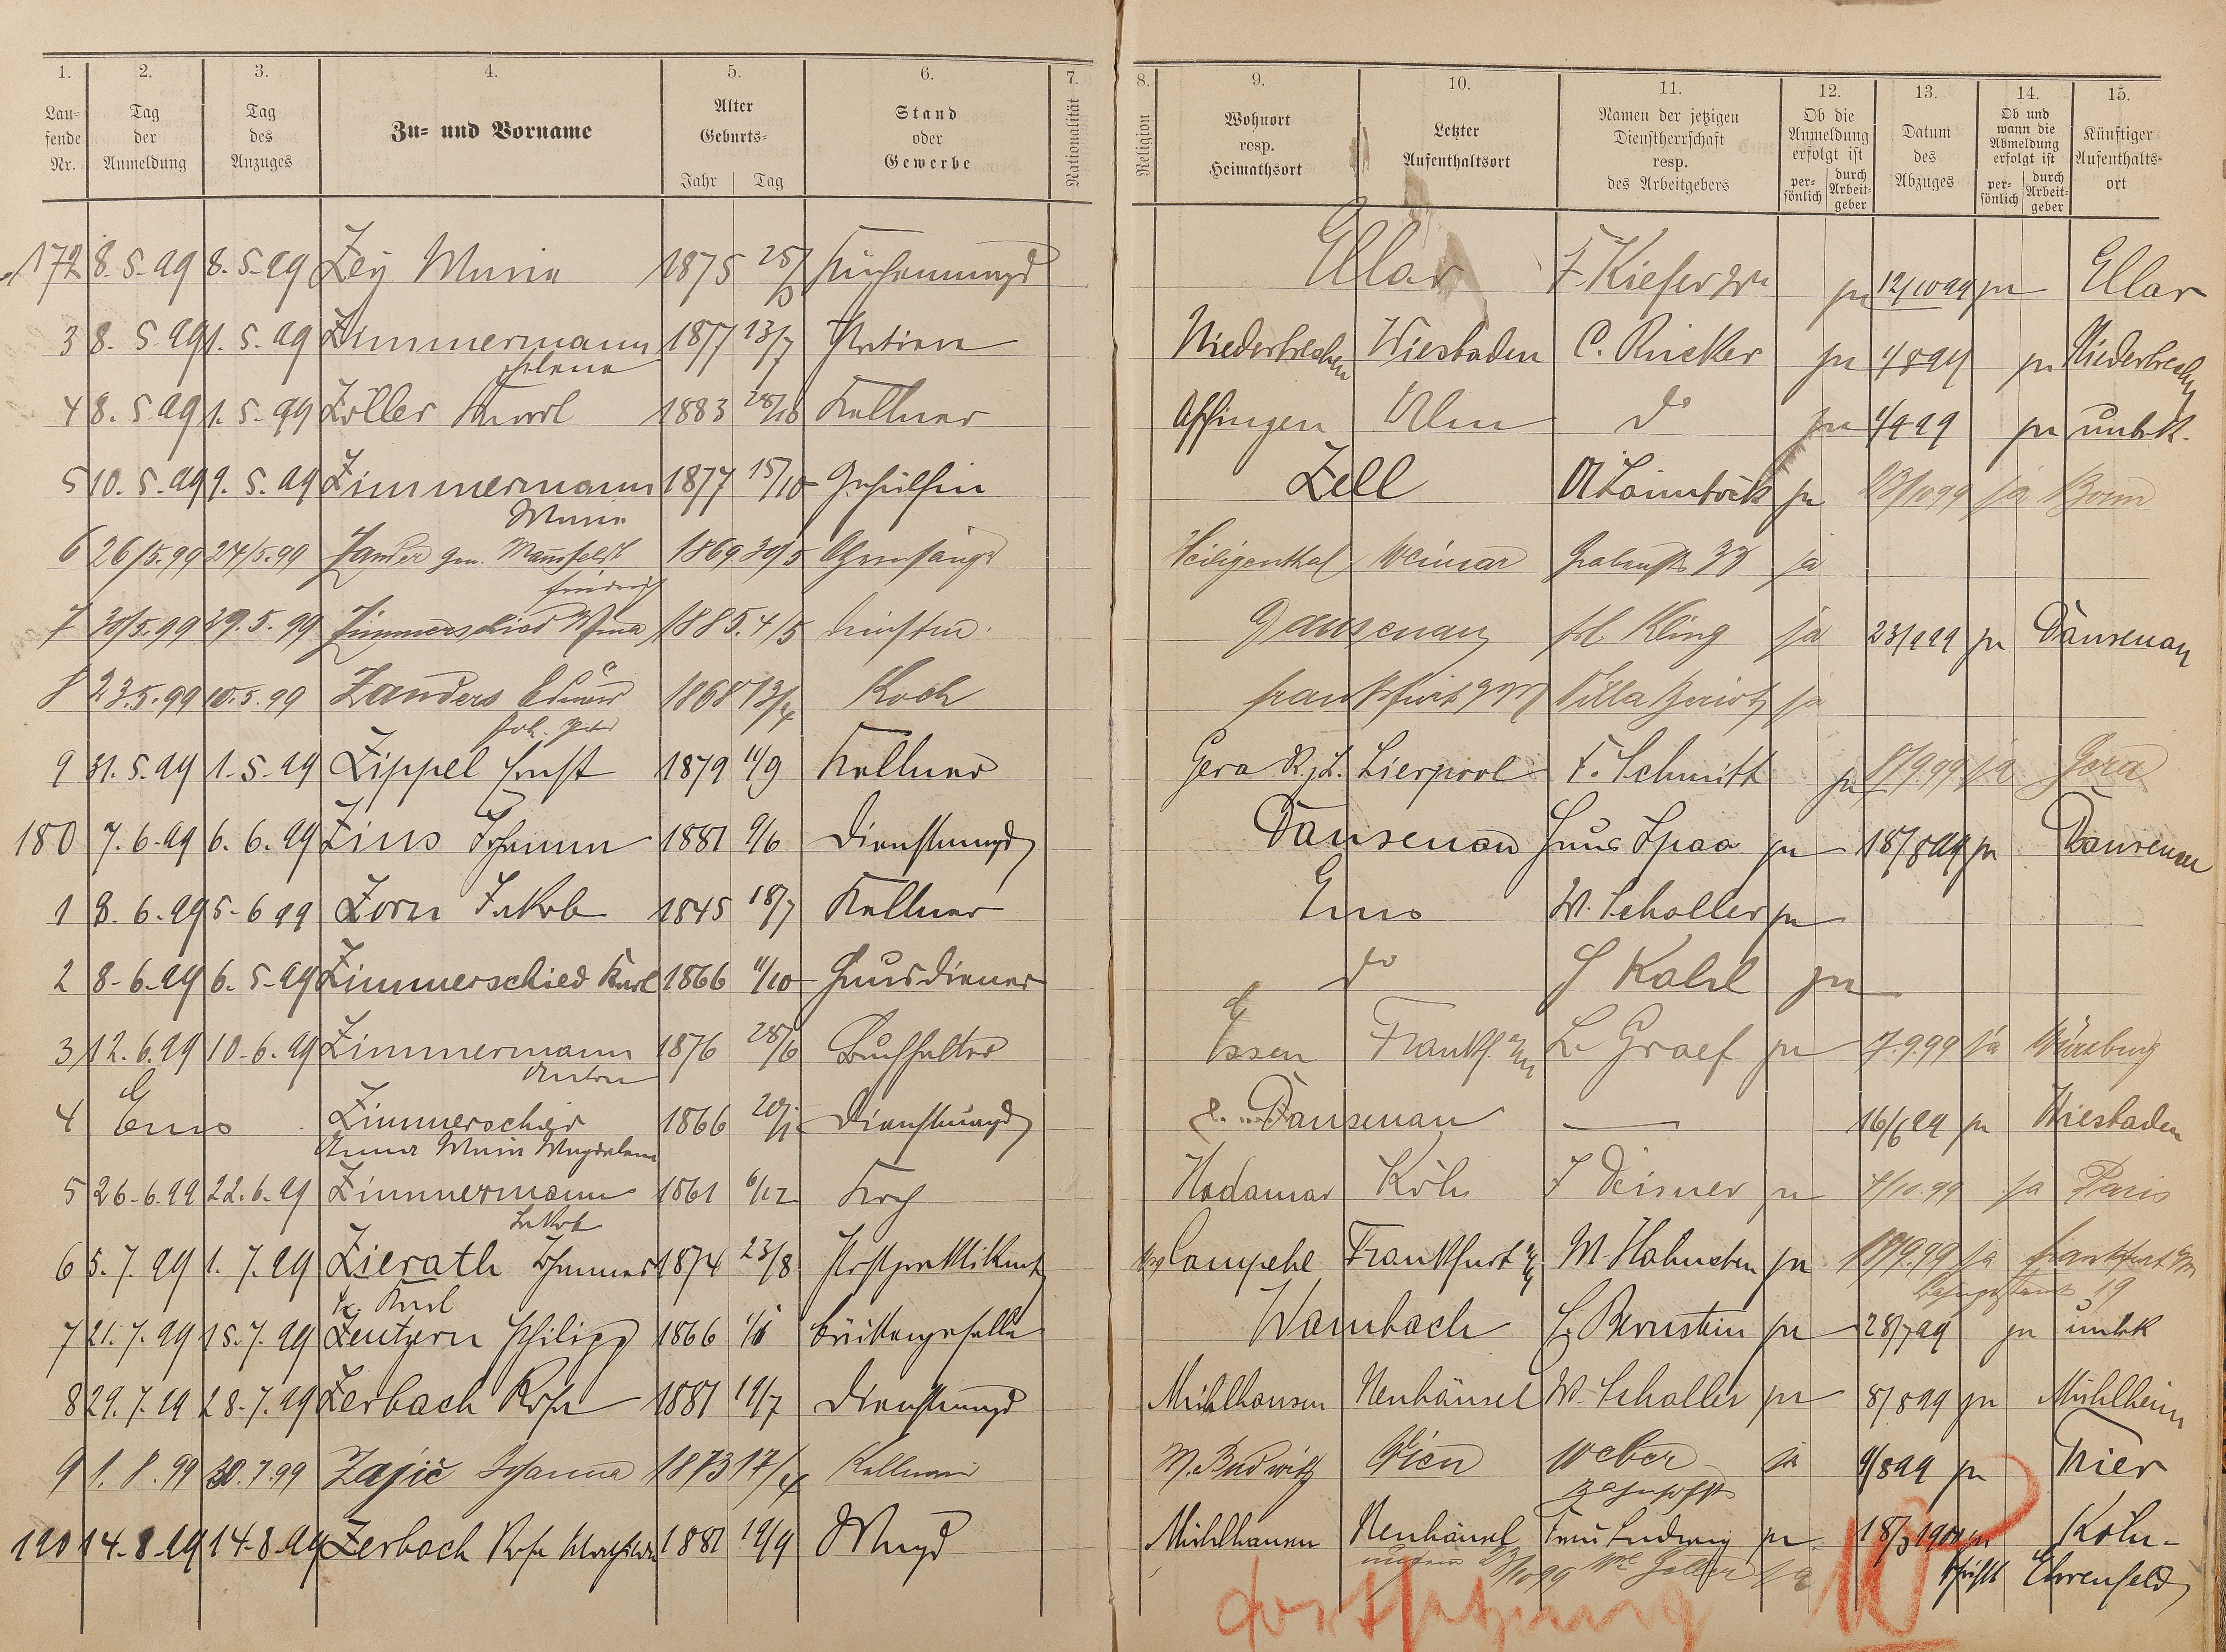 1. 2. 3. 4. 5. 6. 7. 8. 9. 10. 11. 12. 13. 14. 15.
Lau-
fende
Nr.
Tag
der
Anmeldung
Tag
des
Anzuges
Zu- und Vorname
Alter
Geburts-
Jahr Tag
Stand
oder
Gewerbe
Nationalität
Religion
Wohnort
resp.
Heimathsort
Letzter
Aufenthaltsort
Namen der jetzigen
Dienstherrschaft
resp.
des Arbeitgebers
Ob die
Anmeldung
erfolgt ist
per-
sönlich
durch
Arbeit-
geber
Datum
des
Abzuges
Ob und
wann die
Abmeldung
erfolgt ist
per-
sönlich
durch
Arbeit-
geber
Künftiger
Aufenthalts-
ort
172 8. 5. 99 8. 5. 99 Zey Maria 1875 Küchenmagd Ellar F. Kiefer ja 12/10 99 ja Ellar
3 8. 5. 99 1. 5. 99 Zimmermann 1877 13/7 Wiesbaden C. Rücker ja 1/8 99 ja
Helene
4 8. 5. 99 1. 5. 99 Zöller Karl 1883 28/10 Kellner Ulm do ja 1/9 99 ja unbek.
5 10. 5. 99 9. 5. 99 Zimmermann 1877 15/10 Gehülfin Zell ja 23/10 99 ja Bonn
Maria
6 26/5. 99 24/5. 99 Zander gen. Mansfeldt 1869 30/5 Heiligenthal Weimar Grabenstr. ja
Friedrich
7 30/5. 99 29. 5. 99 Zimmerschied 1885. 4/5 Dausenau Kling ja 23/9 99 ja Dausenau
8 23. 5. 99 10. 5. 99 Zanders Eduard 1868 13/4 Koch Frankfurt Villa ja
Joh. Peter
9 31. 5. 99 1. 5. 99 Zippel Ernst 1879 11/9 Kellner Gera R. j. L. Lierpool F. Schmitt ja 99 ja Gera
180 7. 6. 99 6. 6. 99 Zins 1881 9/6 Dienstmagd Dausenau Haus Spaa ja 18/8 99 ja Dausenau
1 8. 6. 99 5. 6 99 Zorn Jakob 1845 18/7 Kellner Ems W. Scholler ja
2 8. 6. 99 6. 5. 99 Zimmerschied Karl 1866 11/10 Hausdiener do ja
3 12. 6. 99 10. 6. 99 Zimmermann 1876 28/6 Buchhalter Essen Frankf. L. Graef ja 7. 9. 99 ja Würzburg
Anton
4 Ems Zimmerschied 1866 Dienstmagd Dausenau — 16/6 99 ja Wiesbaden
Anna Maria Magdalena
5 26. 6. 99 22. 6. 99 Zimmermann 1861 6/12 Koch Hadamar Köln ja 4/10. 99 ja Paris
Jakob
6 5. 7. 99 1. 7. 99 Zierath Johannes 1874 23/8 Postpraktikant Frankfurt ja 99 ja Frankfurt
Karl 19
7 21. 7. 99 15. 7. 99 Philipp 1866 Wambach Bernstein ja 28/7 99 ja unbk
8 29. 7. 99 28. 7. 99 Zerbach Rosa 1881 19/7 Dienstmagd Mühlhausen Neuhäusel W. Scholler ja 8/8 99 ja Mühlheim
9 1. 8. 99 30. 7. 99 Zajic Johanna 1873 17/4 M. Budwitz Wien Weber ja 9/8 99 ja Trier
190 14. 8. 99 14. 8. 99 Zerbach Rosa 1881 19/9 Magd Mühlhausen Neuhäusel Frau Ludwig ja Köln-
Ehrenfeld
Fortsetzung